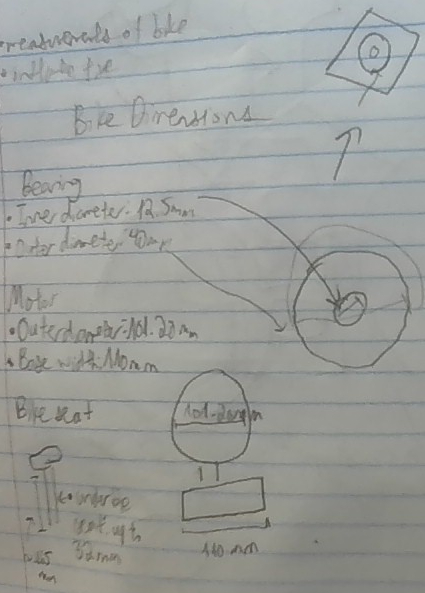 measurements of bike
• inflate tire
Bike Dimensions
Bearing
• Inner diameter - 12.5mm
• Outer diameter 40mm
Motor
• Outer diameter - 101.20mm
• Base width 110mm
Bike seat
101.20mm
32mm
mm
110 mm